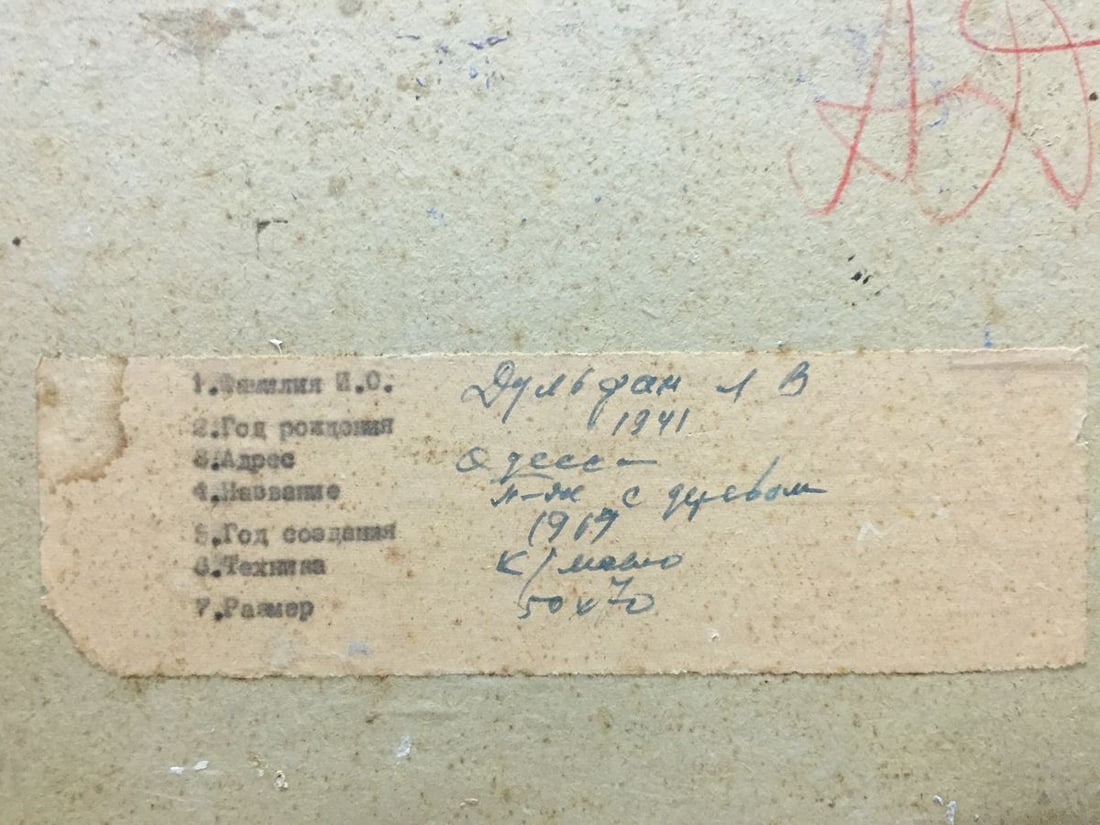 1.Фамилия И.О. Дульфан Л В
2.Год рождения 1941
3.Адрес Одесса
4.Название п-ж с деревом
5.Год создания
6.Техника к/масло
7.Размер 50х70